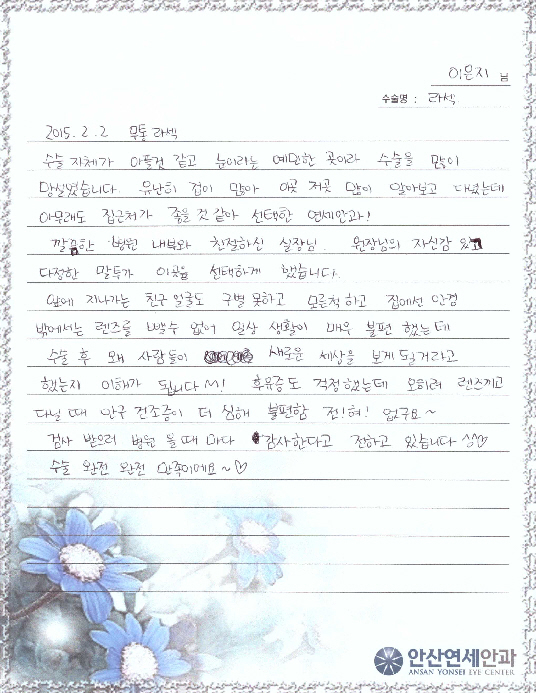 이은지 님
수술명 : 라섹
2015. 2. 2 무통 라섹
수술 자체가 아플것 같고 눈이라는 예민한 곳이라 수술을 많이
망설였습니다. 유난히 겁이 많아 이곳 저곳 많이 알아보고 다녔는데
아무래도 집근처가 좋을 것 같아 선택한 연세안과!
깔끔한 병원 내부와 친절하신 실장님. 원장님의 자신감 있고
다정한 말투가 이곳을 선택하게 했습니다.
앞에 지나가는 친구 얼굴도 구별 못하고 모른척 하고 집에선 안경
밖에서는 렌즈를 뺄수 없어 일상 생활이 매우 불편 했는데
수술 후 왜 사람들이 새로운 세상을 보게 될거라고
했는지 이해가 됩니다^^! 후유증도 걱정했는데 오히려 렌즈끼고
다닐 때 안구 건조증이 더 심해 불편함 전!혀! 없구요~
검사 받으러 병원 올 때 마다 감사한다고 전하고 있습니다 ^^♡
수술 완전 완전 만족이에요~♡
안산연세안과
ANSAN YONSEI EYE CENTER